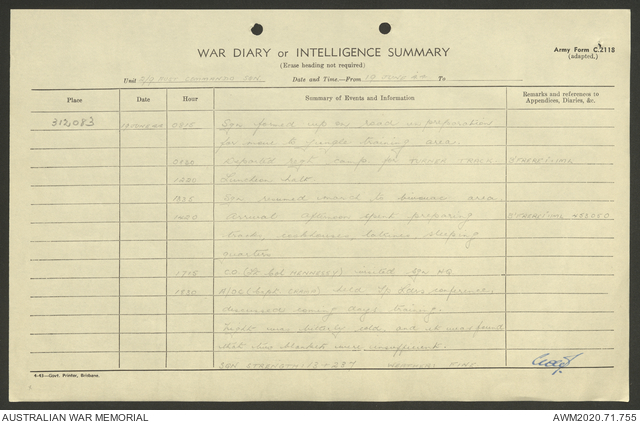 Army Form C.2118
(adapted.)
WAR DIARY or INTELLIGENCE SUMMARY
(Erase heading not required)
Unit Date and Time—From 19 To
Place Date Hour Summary of Events and Information Remarks and references to Appendices, Diaries, &c.
312083 0815 Sqn formed up on road in preparation
for move to jungle training area.
0830 Departed regt camp for TURNER TRACK
1230 Luncheon halt.
Sqn resumed march to bivouac area
1400 Arrival afternoon spent preparing
tracks, cookhouses, latrines, sleeping
quarters
1715 CO (Lt Col HENNESSY) visited Sqn HQ
1830 A/OC (Capt ) held Tp Ldrs conference,
discussed coming days training.
Night was bitterly cold, and it was found
that blankets were insufficient.
SQN STRENGTH + 237 WEATHER: FINE
4-43—Govt. Printer, Brisbane.
AUSTRALIAN WAR MEMORIAL AWM2020.71.755